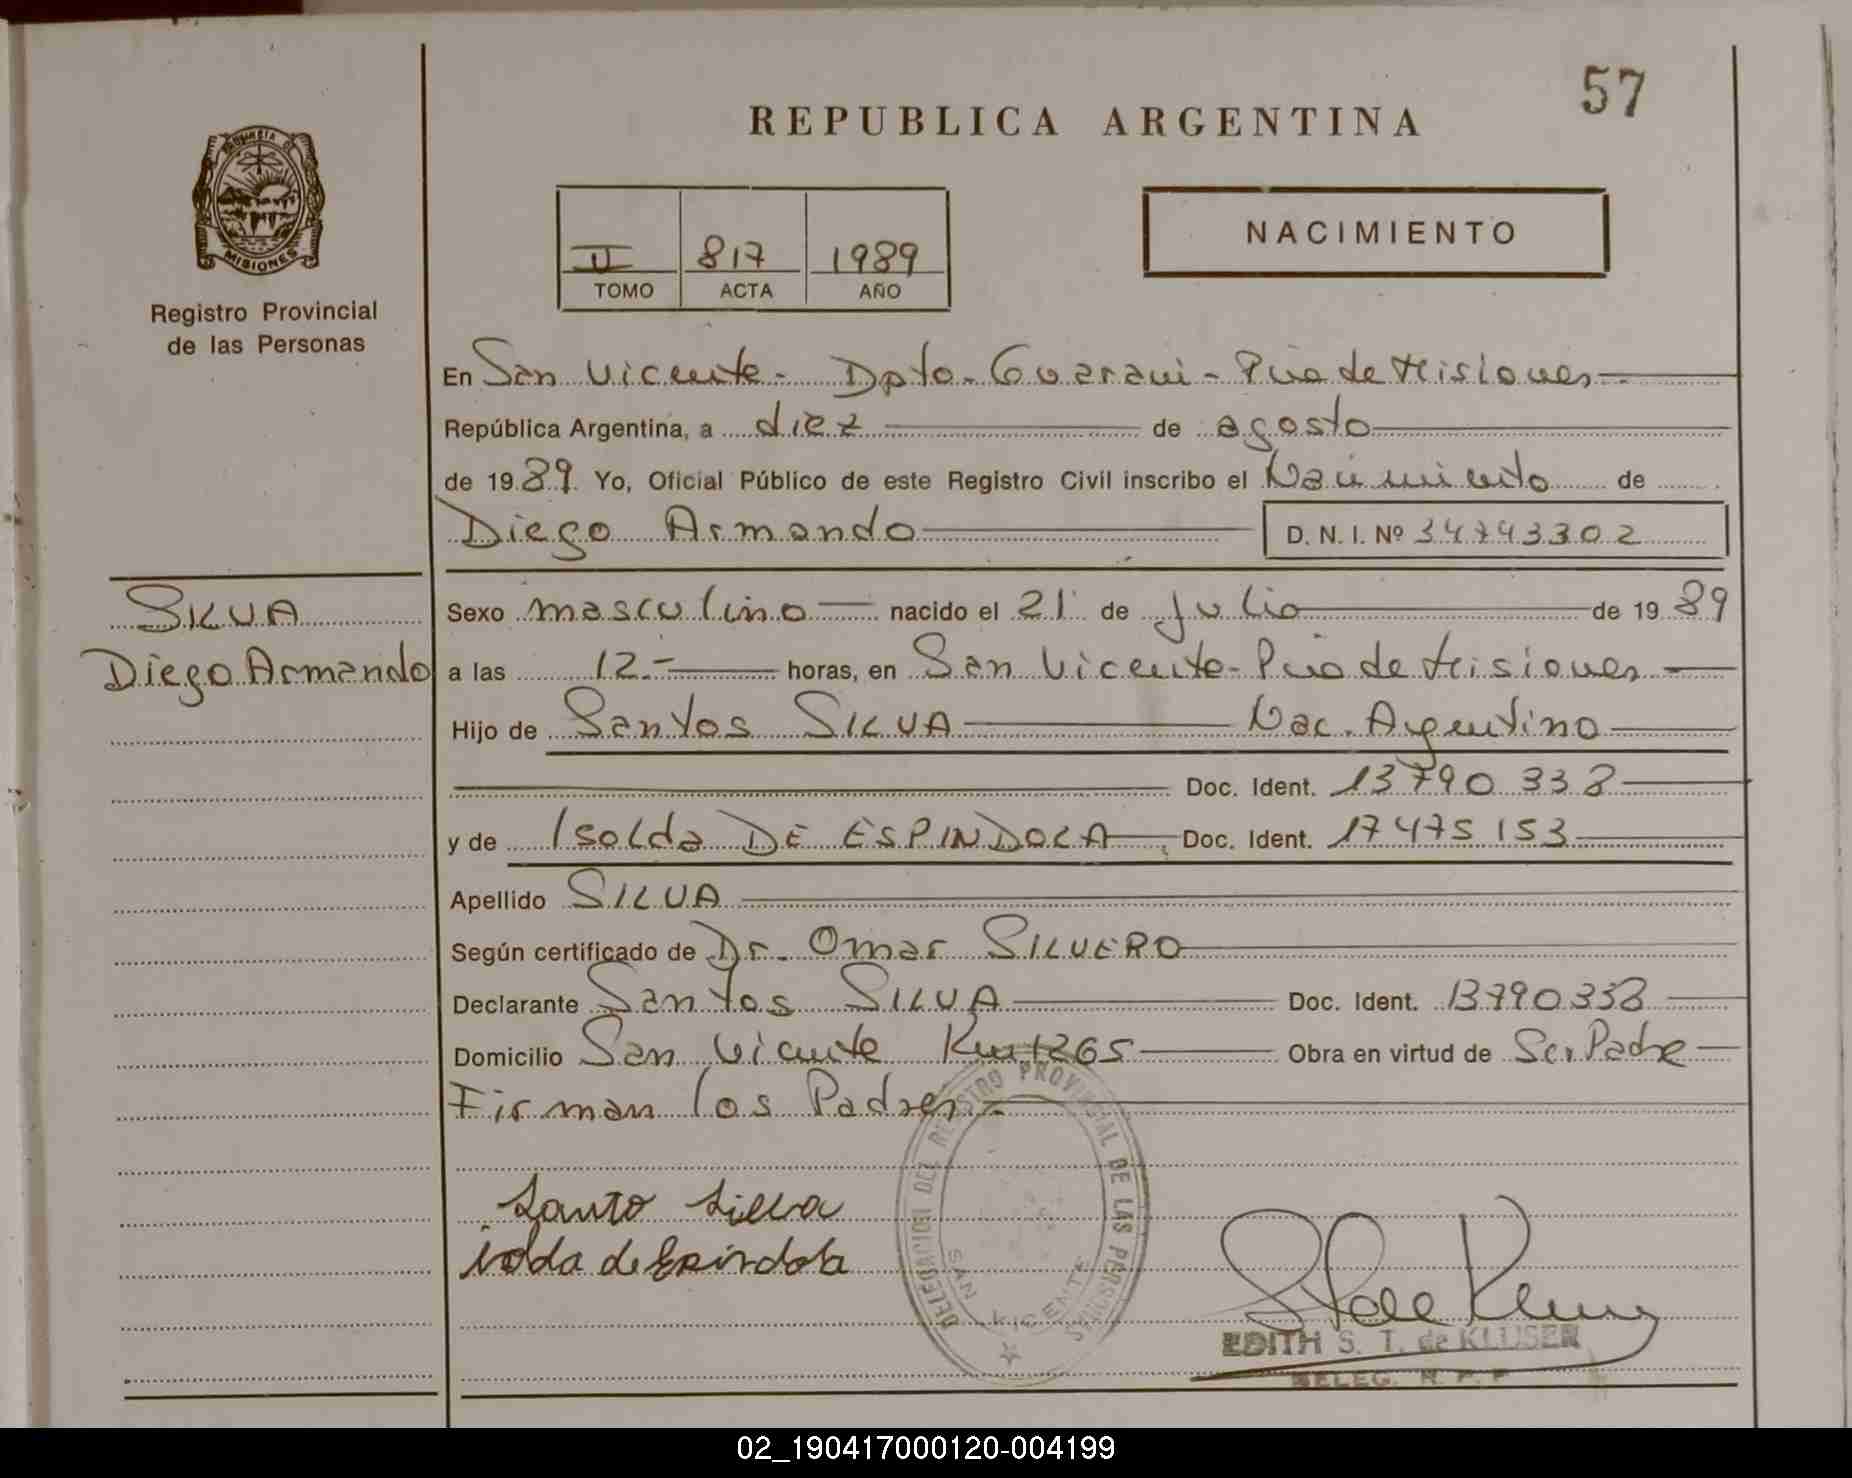 57
REPUBLICA ARGENTINA
PROVINCIA DE MISIONES
Registro Provincial
de las Personas
II 817 1989
TOMO ACTA AÑO
NACIMIENTO
En San Vicente - Dpto. Guarani - Pcia de Misiones
República Argentina, a diez de agosto
de 1989. Yo, Oficial Público de este Registro Civil inscribo el Nacimiento de
Diego Armando D. N. I. Nº 34743302
SILVA
Diego Armando
Sexo masculino nacido el 21 de Julio de 1989
a las 12.- horas, en San Vicente - Pcia de Misiones
Hijo de Santos SILVA Nac. Argentino
Doc. Ident. 13790338
y de Isolda DE ESPINDOLA Doc. Ident. 17475153
Apellido SILVA
Según certificado de Dr. Omar SILVERO
Declarante Santos SILVA Doc. Ident. 13790338
Domicilio San Vicente Km 1265 Obra en virtud de Ser Padre
Firman los Padres.-
Santo Silva
de Espindola
DELEGACION DEL REGISTRO PROVINCIAL DE LAS PERSONAS
SAN VICENTE
EDITH S. T. de KLUSER
DELEG. R. P. P
02_190417000120-004199